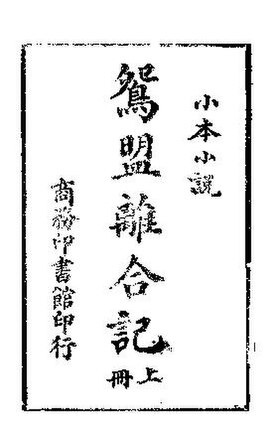 小本小説
鴛盟離合記
上冊
商務印書館印行